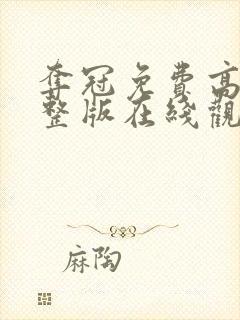 夺冠免費高
整版在綫觀
麻陶